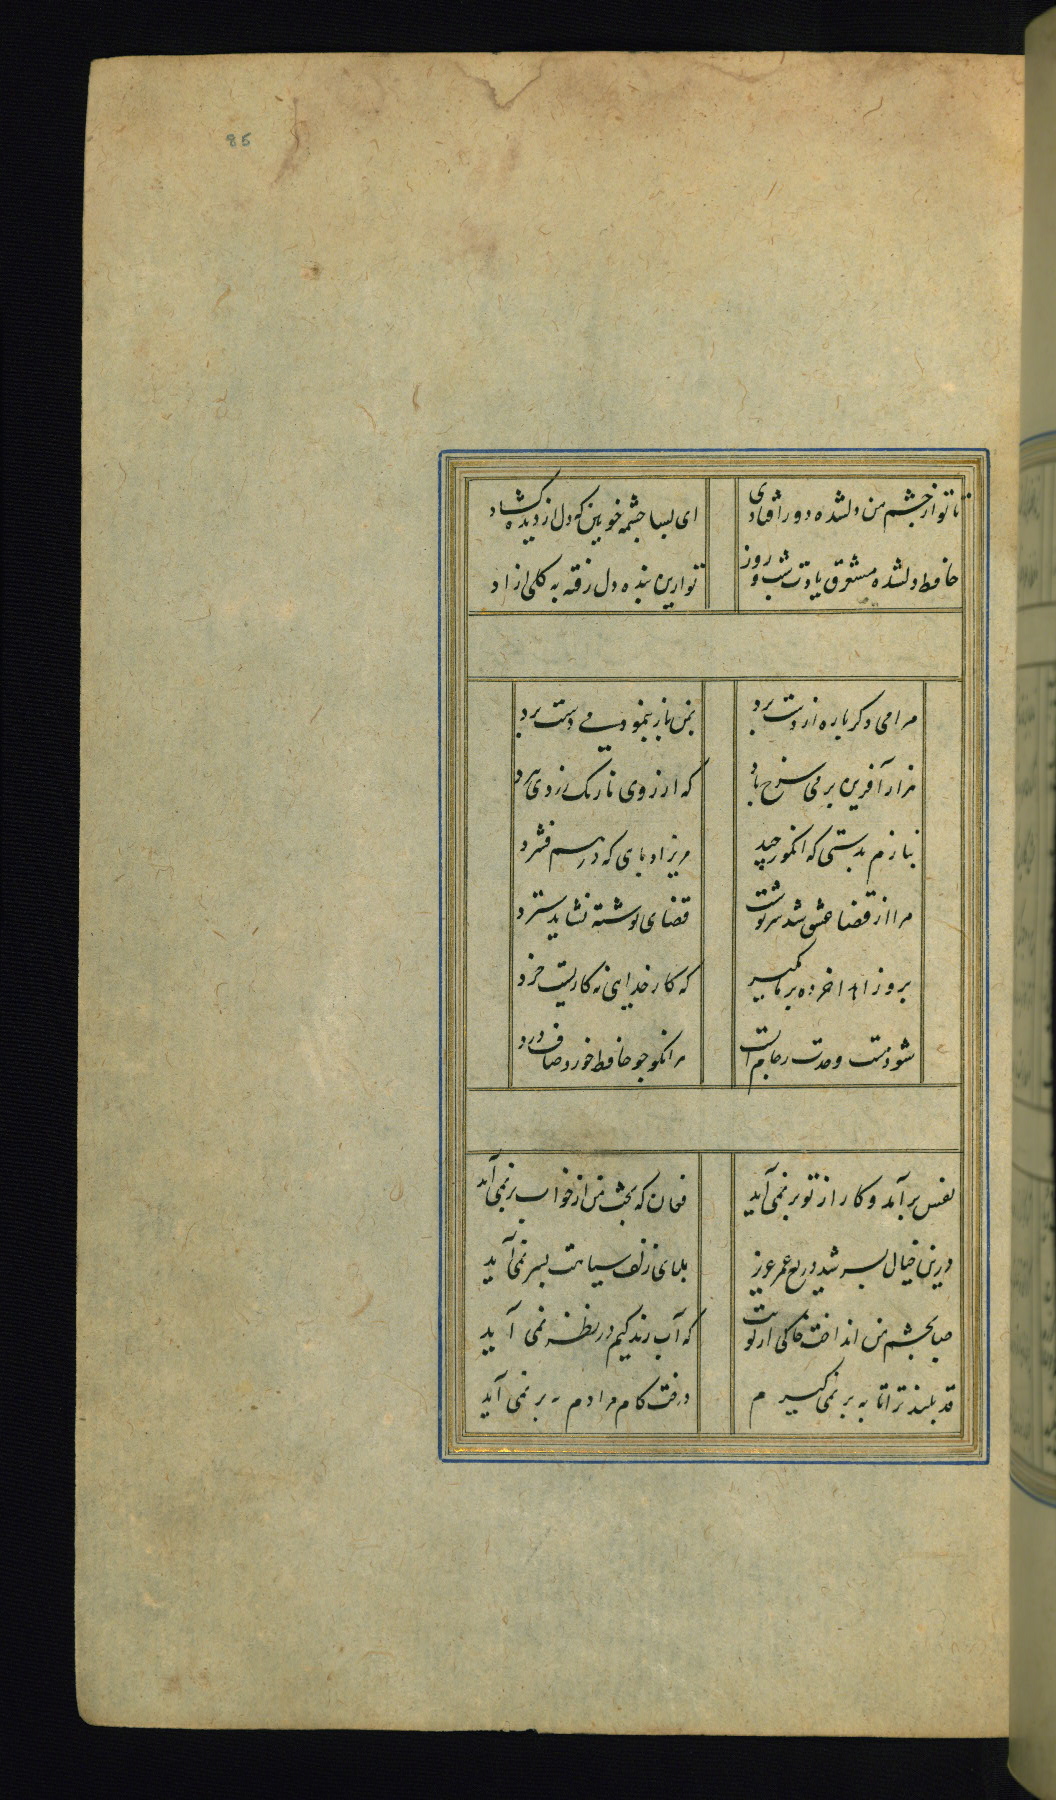 85
تا تو از چشم من دلشده دور افتادی
ای بسا چشمه خونین که دل از دیده گشاد
حافظ دلشده مستغرق یادت شب و روز
تو ازین بنده دل رفته به کلی ازاد
مرا می دگر باره از دست برد
بمن باز بنمود می دست برد
هزار آفرین بر می سرخ باد
که از روی ما رنگ زردی ببرد
بنازم بدستی که انگور چید
مریزاد پای که در هم فشرد
مرا از قضا عشق شد سرنوشت
قضای نوشته نشاید سترد
که کار خدایی نه کاریست خرد
شود مست وحدت زجام الست
هر انکو چو حافظ خورد صاف و درد
نفس برآمد و کار از تو بر نمی آید
فغان که بخت من از خواب بر نمی آید
درین خیال بسر شد دریغ عمر عزیز
بلای زلف سیاهت بسر نمی آید
صبا بچشم من انداخت خاکی از کویت
که آب زندگیم در نظر نمی آید
قد بلند ترا تا به بر نمی گیرم
درخت کام مرادم به بر نمی آید